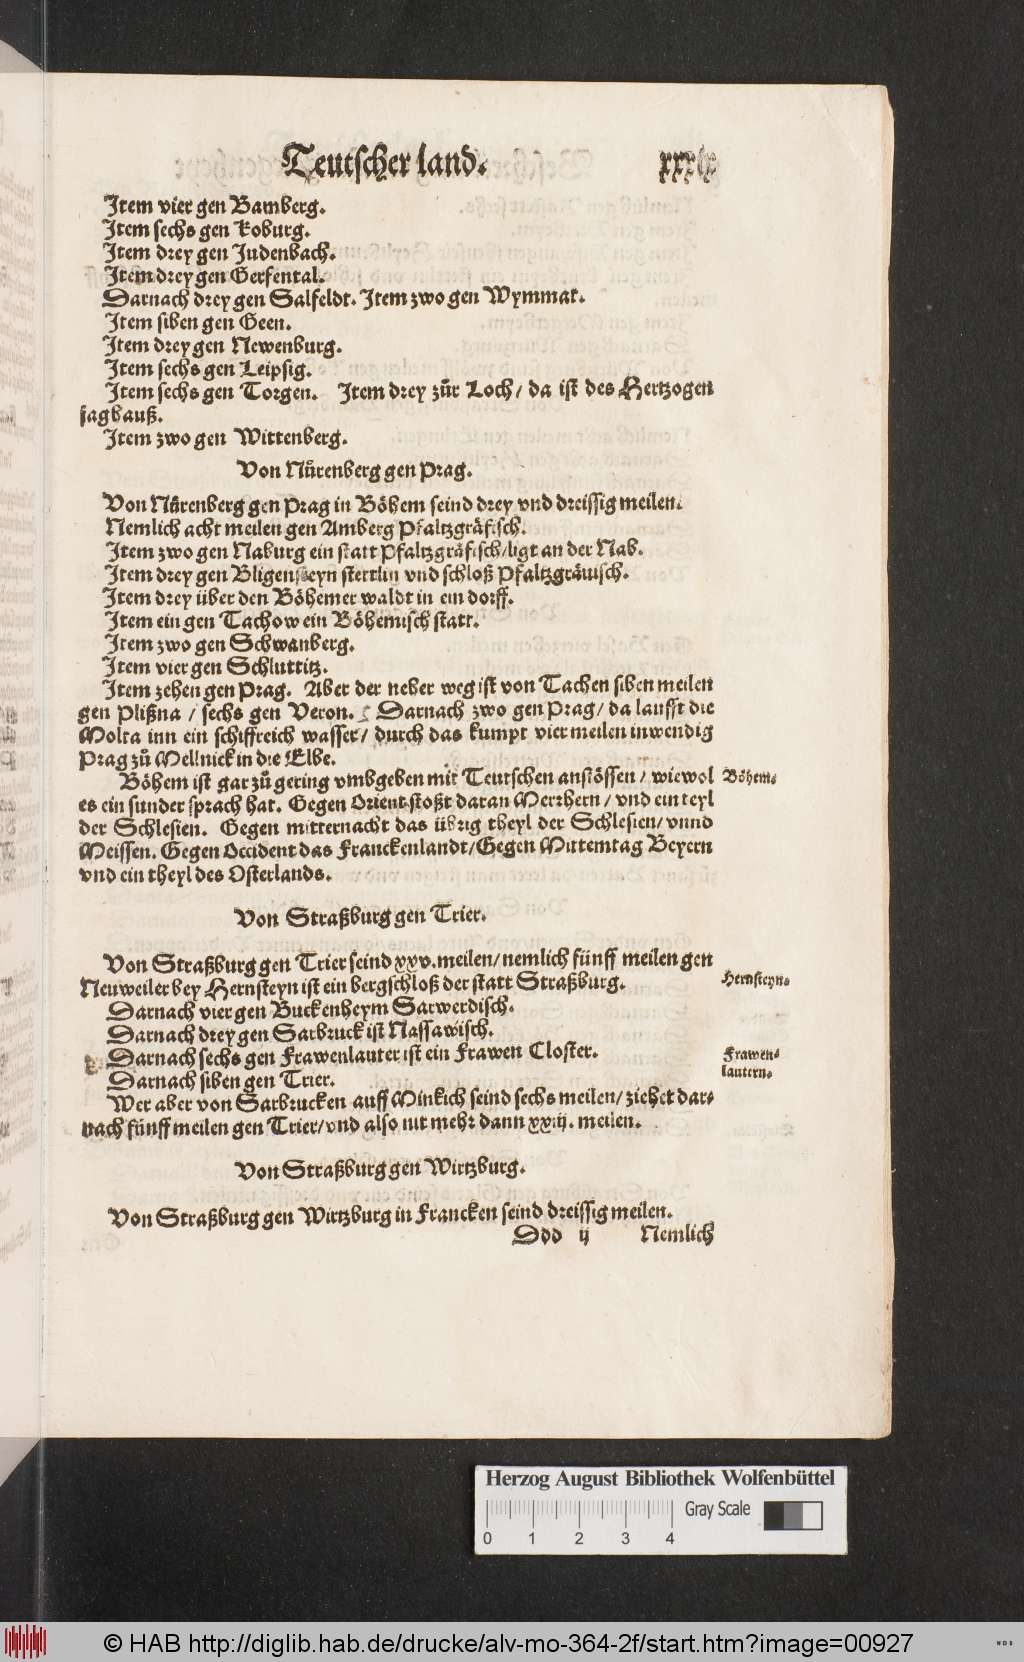 Teutscher land. xxxix
Item vier gen Bamberg.
Item sechs gen Koburg.
Item drey gen Judenbach.
Item drey gen Gerfental.
Darnach drey gen Salfeldt. Item zwo gen Wymmar.
Item siben gen Geen.
Item drey gen Newenburg.
Item sechs gen Leipsig.
Item sechs gen Torgen. Item drey zůr Loch/ da ist des Hertzogen
jaghauß.
Item zwo gen Wittenberg.
Von Nůrenberg gen Prag.
Von Nůrenberg gen Prag in Böhem seind drey vnd dreissig meilen.
Nemlich acht meilen gen Amberg Pfaltzgräfisch.
Item zwo gen Naburg ein statt Pfaltzgräfisch/ligt an der Nab.
Item drey gen stettlin vnd schloß Pfaltzgräuisch.
Item drey über den Böhemer waldt in ein dorff.
Item ein gen Tachow ein Böhemisch statt.
Item zwo gen Schwanberg.
Item vier gen Schluttitz.
Item zehen gen Prag. Aber der neber weg ist von Tachen siben meilen
gen Plißna / sechs gen Veron. Darnach zwo gen Prag/ da laufft die
Molta inn ein schiffreich wasser/ durch das kumpt vier meilen inwendig
Prag zů Mellnick in die Elbe.
Böhem ist gar zů gering vmbgeben mit Teutschen anstössen / wiewol
Böhem.
es ein sunder sprach hat. Gegen Orient stoßt daran Merrhern / vnd ein teyl
der Schlesien. Gegen mitternacht das übrig theyl der Schlesien/ vnnd
Meissen. Gegen Occident das Franckenlandt/Gegen Mittemtag Beyern
vnd ein theyl des Osterlands.
Von Straßburg gen Trier.
Von Straßburg gen Trier seind xxv. meilen/ nemlich fünff meilen gen
Neuweiler bey Hernsteyn ist ein bergschloß der statt Straßburg.
Hernsteyn.
Darnach vier gen Buckenheym Sarwerdisch.
Darnach drey gen Sarbruck ist Nassawisch.
Darnach sechs gen Frawenlauter ist ein Frawen Closter.
Frawen-
lautern.
Darnach siben gen Trier.
Wer aber von Sarbrucken auff Minkich seind sechs meilen/ ziehet dar-
nach fünff meilen gen Trier/vnd also nit mehr dann xxiij. meilen.
Von Straßburg gen Wirtzburg.
Von Straßburg gen Wirtzburg in Francken seind dreissig meilen.
Ddd ij Nemlich
Herzog August Bibliothek Wolfenbüttel
Gray Scale
0 1 2 3 4
© HAB http://diglib.hab.de/drucke/alv-mo-364-2f/start.htm?image=00927